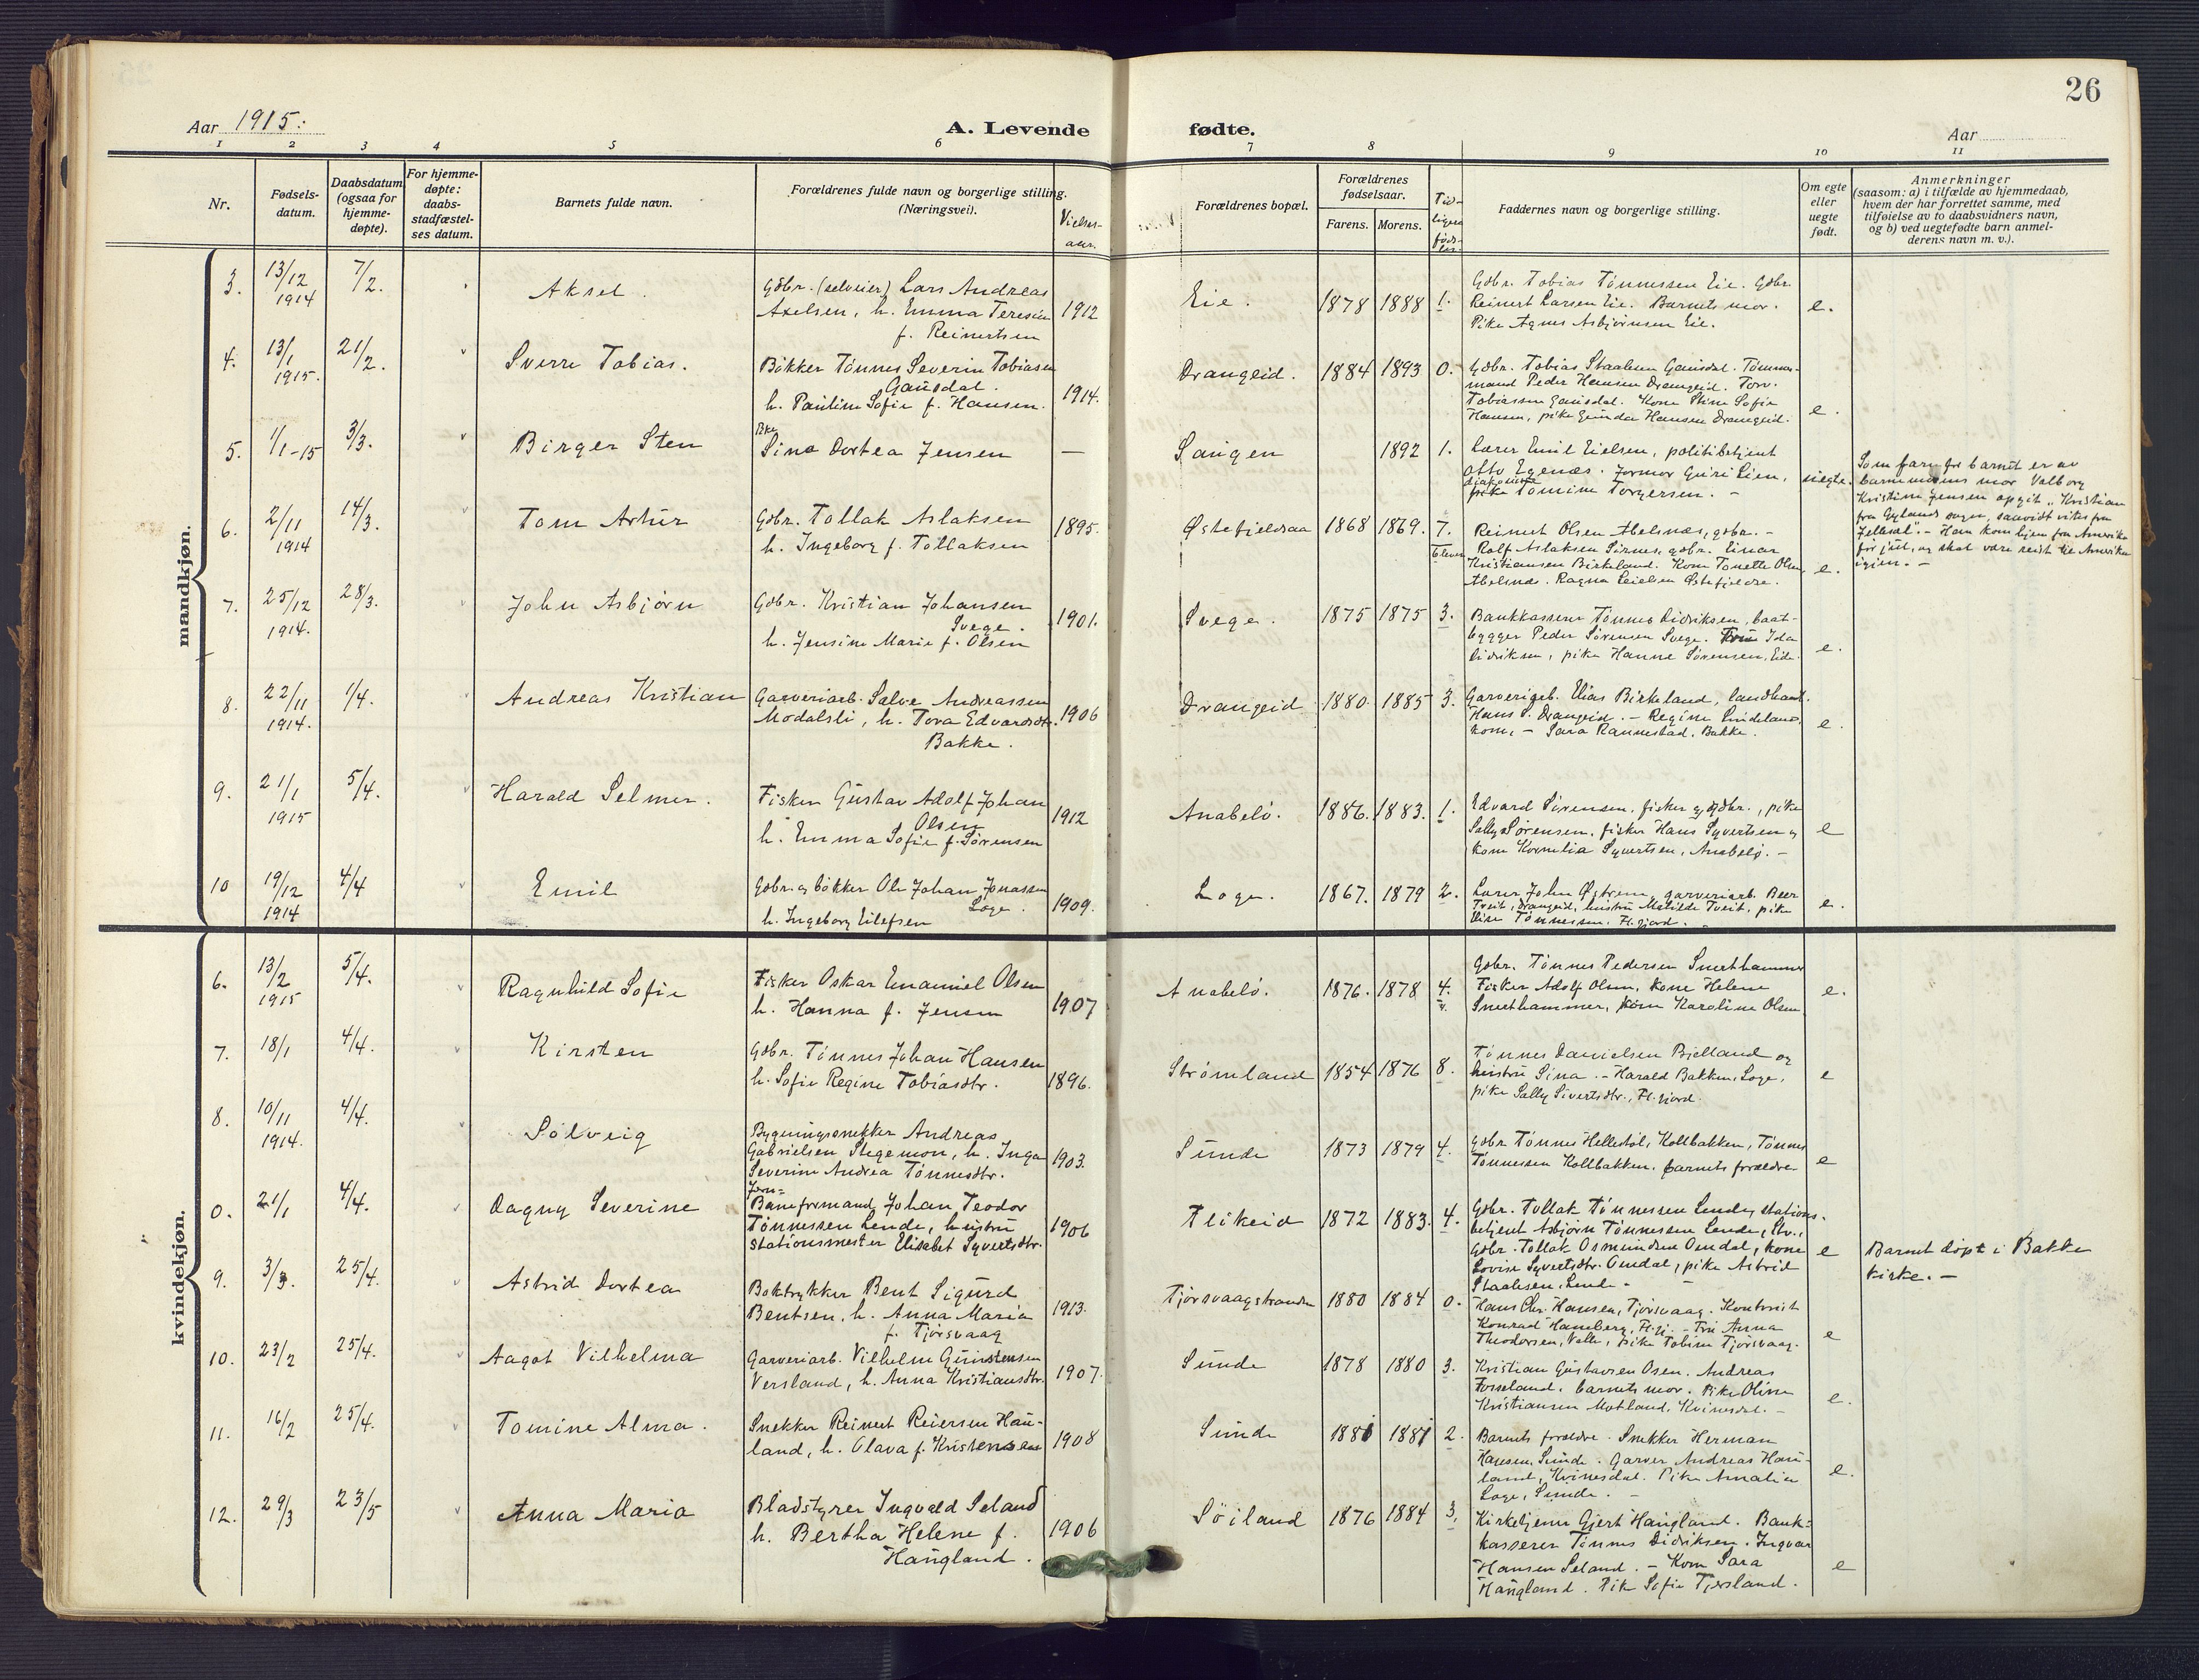 26
Aar 1915:
A. Levende
fødte.
Aar
1 2 3 4 5 6 7 8 9 10 11
Nr.
Fødsels-
datum.
Daabsdatum
(ogsaa for
hjemme-
døpte).
For hjemme-
døpte:
daabs-
stadfæstel-
ses datum.
Barnets fulde navn.
Forældrenes fulde navn og borgerlige stilling.
(Næringsvei).
Vielses-
aar.
Forældrenes bopæl.
Forældrenes
fødselsaar.
Farens. Morens.
Tid-
ligere
føds-
ler.
Faddernes navn og borgerlige stilling.
Om egte
eller
uegte
født.
Anmerkninger
(saasom: a) i tilfælde av hjemmedaab,
hvem der har forrettet samme, med
tilføielse av to daabsvidners navn,
og b) ved uegtefødte barn anmel-
derens navn m. v.).
mandkjøn.
3. 13/12 1914 7/2. Aksel.
Gdbr. (selveier) Lars Andreas
Axelsen, h. Emma Teresia
f. Reinertsen
1912
Eie. 1878 1888 1.
Gdbr. Tobias Tønnessen Eie. Gdbr.
Reinert Larsen Eie. Barnets mor.
Pike Agnes Asbjørnsen Eie.
e.
4. 13/1 1915. 21/2. Sverre Tobias.
Bøkker Tønnes Severin Tobiasen
Gausdal.
h. Pauline Sofie f. Hansen.
1914.
Drangeid. 1884 1893 0.
Gdbr. Tobias Staalesen Gausdal. Tømmer-
mand Peder Hansen Drangeid. Torv.
Tobiassen Gausdal. Kone Stine Sofie
Hansen, pike Gunda Hansen Drangeid.
e.
5. 1/1-15 3/3. Birger Sten
Pike
Sina Dortea Jensen
—
Saugen 1892 1.
Lærer Emil Eielsen, politibetjent
Otto Egenæs. Jormor Guri Lien,
diakonisse
Tomine Torgersen. -
uegte.
Som far for barnet er av
barnemorens mor Valborg
Kristine Jensen opgit "Kristian
fra Gylands sogn, saavidt vites fra
". - Han kom hjem fra Amerika
før jul, og skal være reist til Amerika
igjen. -
6. 2/11 1914 14/3. Tom Artur
Gdbr. Tollak Aslaksen
h. Ingeborg f. Tollaksen
1895.
Østefjeldsaa 1868 1869. 7.
6 lever
Reinert Olsen Abelsnæs, gdbr. -
Rolf Aslaksen Sirnes, gdbr. Einar
Kristiansen Birkeland. Kone Tonette Olsen,
Abelsnæs. Ragna Eielsen Østefjeldre.
e.
7. 25/12 1914. 28/3. John Asbjørn
Gdbr. Kristian Johansen
Svege.
h. Jensine Marie f. Olsen
1901.
Svege. 1875 1875 3.
Bankkasserer Tønnes Didriksen, baat-
bygger Peder Sørensen Svege. Ida
Didriksen, pike Hanne Sørensen, Eide.
e.
8. 22/11 1914. 1/4. Andreas Kristian
Garveriarb. Salve Andreassen
Modalsli, h. Tora Edvardsdtr.
Bakke.
1906
Drangeid 1880 1885 3.
Garveriarb. Elias Birkeland, landhand.
Hans P. Drangeid. - Regine Lindeland,
kone, - Sara Rannestad, Bakke.
e.
9. 21/1 1915 5/4. Harald Selmer.
Fisker Gustav Adolf Johan
Olsen
h. Emma Sofie f. Sørensen
1912
Anabelø. 1886. 1883. 1.
Edvard Sørensen, fisker og gdbr., pike
Sally Sørensen, fisker Hans Syvertsen og
kone Kornelia Syvertsen, Anabelø. -
e
10 19/12 1914 4/4 Emil
Gdbr. og bøkker Ole Johan Jonassen
Loge.
h. Ingeborg Eilefsen
1909.
Loge. 1867. 1879 2.
Lærer John Østrem, garveriarb. Beer
Tveit, Drangeid, hustru Matilde Tveit, pike
Elise Tønnessen, Fl.fjord.
e.
kvindekjøn.
6. 13/2 1915 5/4. Ragnhild Sofie
Fisker Oskar Emanuel Olsen
h. Hanna f. Jensen
1907
Anabelø. 1876. 1878 4.
Gdbr. Tønnes Pedersen Snerthammer
Fisker Adolf Olsen, kone Helene
Snerthammer, kone Karoline Olsen
e.
7. 18/1 4/4. Kirsten
Gdbr. Tønnes Johan Hansen
h. Sofie Regine Tobiasdtr.
1896.
Strømland 1854 1876 8.
Tønnes Danielsen Bjelland og
hustru Sina. - Harald Bakken, Loge,
pike Sally Sivertsdtr., Fl.fjord.
e
8. 10/11 1914. 4/4. Solveig
Bygningssnekker Andreas
Gabrielsen Stegemon, h. Inga
Severine Andrea Tønnesdtr.
1903.
Sunde 1873 1879 4.
Gdbr. Tønnes Hellestøl, Kollbakken, Tønnes
Tønnessen Kollbakken, barnets forældre
e
0. 21/1 4/4. Dagny Severine
Jern-
Baneformand Johan Teodor
Tønnessen Lende, hustru
stationsmester Elisabet Syvertsdtr.
1906
Flikeid 1872 1883. 4.
Gdbr. Tollak Tønnessen Lende, stations-
betjent Asbjørn Tønnessen Lende,
Gdbr. Tollak Osmundsen Omdal, kone
Lovise Syvertsdtr. Omdal, pike Astrid
Staalesen, Lende -
e
Barnet døpt i Bakke
kirke. -
9. 3/3. 25/4. Astrid Dortea
Boktrykker Bent Sigurd
Bentsen, h. Anna Maria
f. Tjørsvaag
1913.
Tjørsvaagstranden 1880 1884 0.
Hans Chr. Hansen, Tjørsvaag. Kontorist
Konrad Hamberg, Fl.fj. - Fru Anna
Theodorsen, Valle, pike Tobine Tjørsvaag.
e
10. 23/2 25/4. Aagot Vilhelma
Garveriarb. Vilhelm Gunstensen
Versland, h. Anna Kristiansdtr.
1907.
Sunde 1878 1880 3.
Kristian Gustavsen Osen. Andreas
Forseland. barnets mor. Pike Oline
Kristiansen Motland, Kvinesdal. -
e.
11. 16/2 25/4. Tomine Alma.
Snekker Reinert Reiersen Hau-
land, h. Olava f. Kristensen
1908
Sunde 1881 1881 2.
Barnets forældre. Snekker Herman
Hansen, Sunde. Garver Andreas Hau-
land, Kvinesdal. Pike Amalie
Loge, Sunde. -
e.
12. 29/3 23/5 Anna Maria
Bladstyrer Ingvald Seland
h. Bertha Helene f.
Haugland.
1906
Søiland 1876 1884 3.
Kirketjener Gjert Haugland. Bank-
kasserer Tønnes Didriksen. Ingvar
Hansen Seland. - Kone Sara
Haugland. Pike Sofie Tjersland.
e